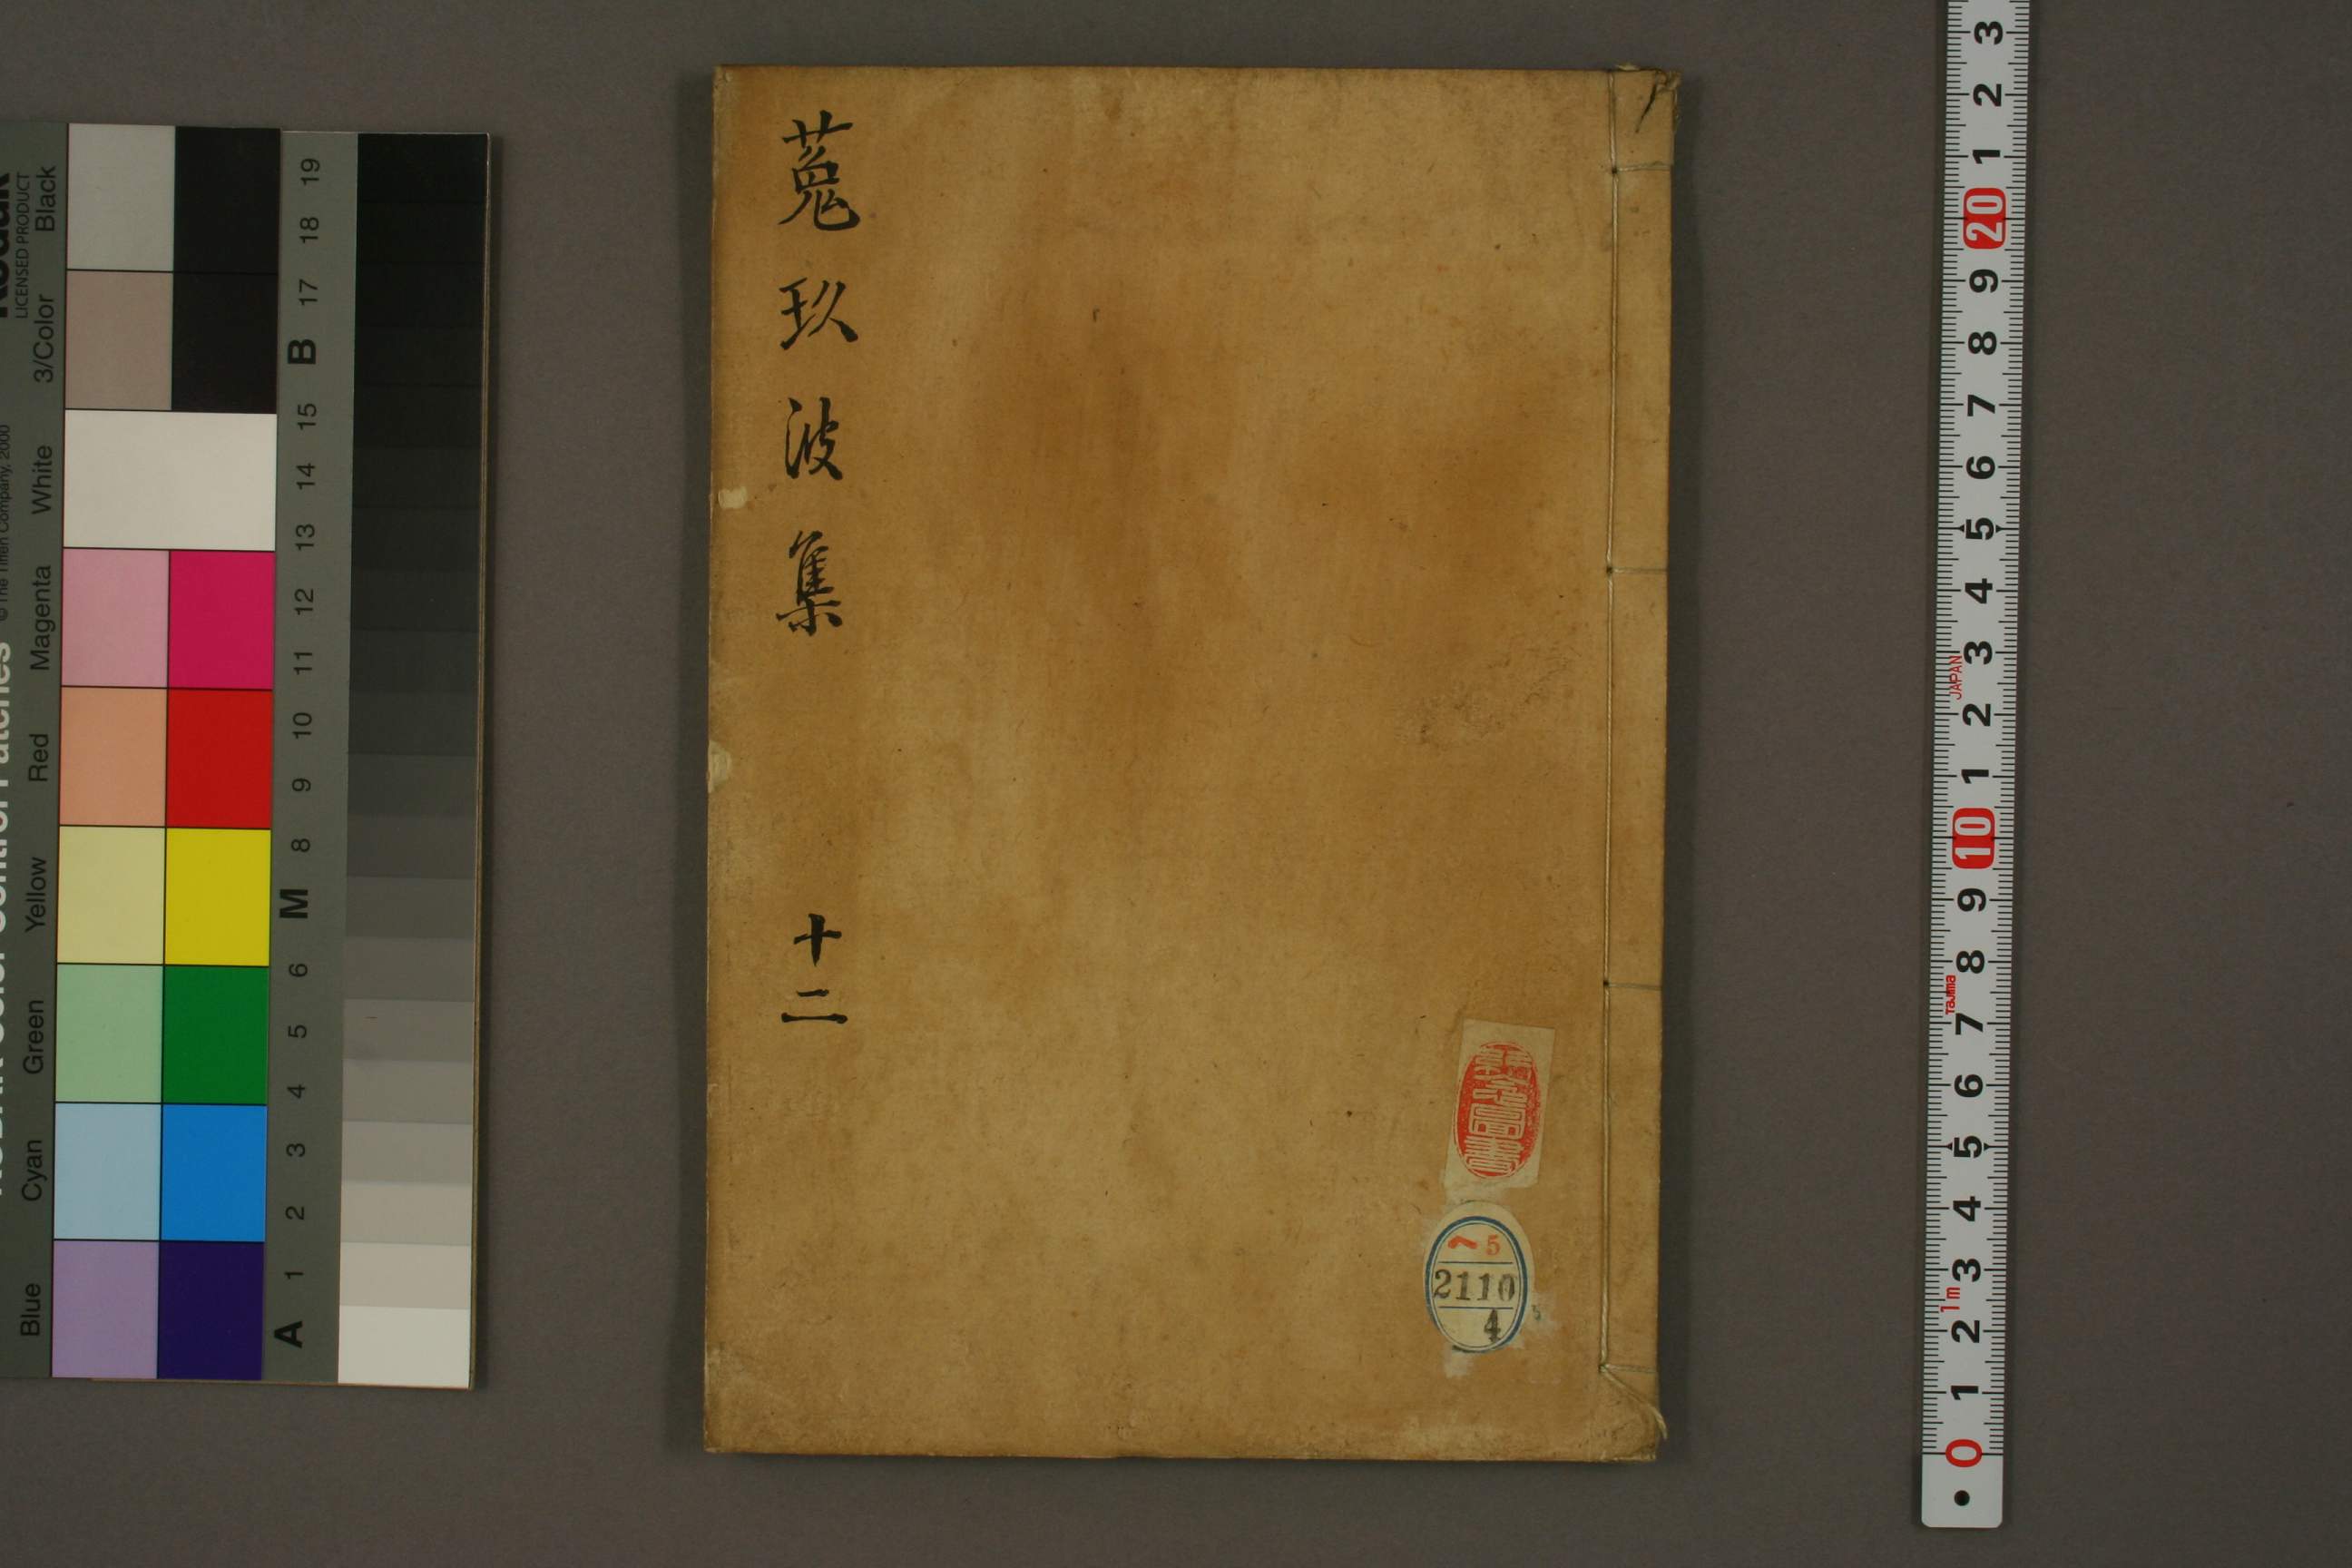 菟玖波集 十二
ヘ 5
2110
4
KODAK Color Control Patches © The Tiffen Company, 2000
Kodak
LICENSED PRODUCT
Blue Cyan Green Yellow Red Magenta White 3/Color Black
A 1 2 3 4 5 6 M 8 9 10 11 12 13 14 15 B 17 18 19
3
2
1
20
9
8
7
6
5
4
3
JAPAN
2
1
10
9
8
Tajima
7
6
5
4
3
1m
2
1
0